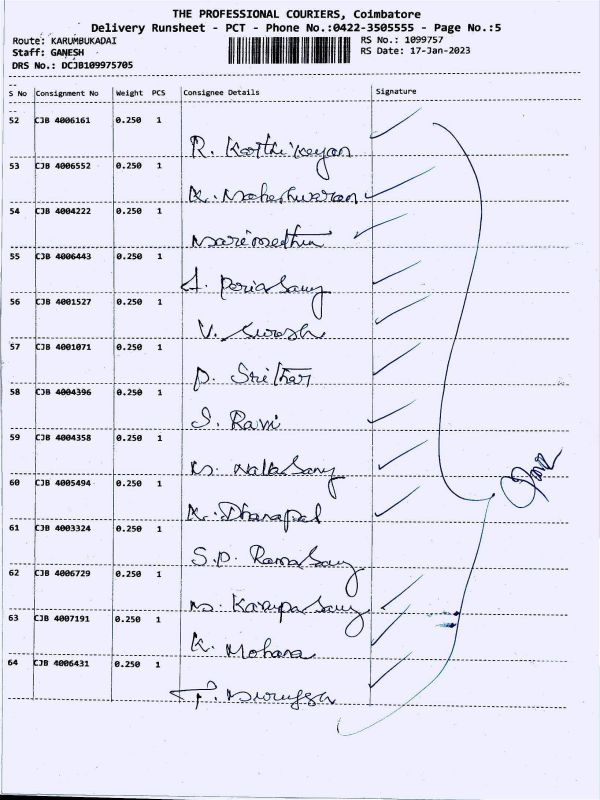 THE PROFESSIONAL COURIERS, Coimbatore
Delivery Runsheet - PCT - Phone No.:0422-3505555 - Page No.:5
Route: KARUMBUKADAI
RS No.: 1099757
Staff: GANESH
RS Date: 17-Jan-2023
DRS No.: DCJB109975705
S No Consignment No Weight PCS Consignee Details Signature
52 CJB 4006161 0.250 1
R. Karthikeyan
53 CJB 4006552 0.250 1
K. Maheshwaran
54 CJB 4004222 0.250 1
55 CJB 4006443 0.250 1
A. PeriaSamy
56 CJB 4001527 0.250 1
V. Suresh
57 CJB 4001071 0.250 1
P. Srithar
58 CJB 4004396 0.250 1
S. Ravi
59 CJB 4004358 0.250 1
M. NallaSamy
60 CJB 4005494 0.250 1
K. Dhanapal
61 CJB 4003324 0.250 1
S.P. RamaSamy
62 CJB 4006729 0.250 1
M. KarupaSamy
63 CJB 4007191 0.250 1
K. Mohana
64 CJB 4006431 0.250 1
P. Murugesan